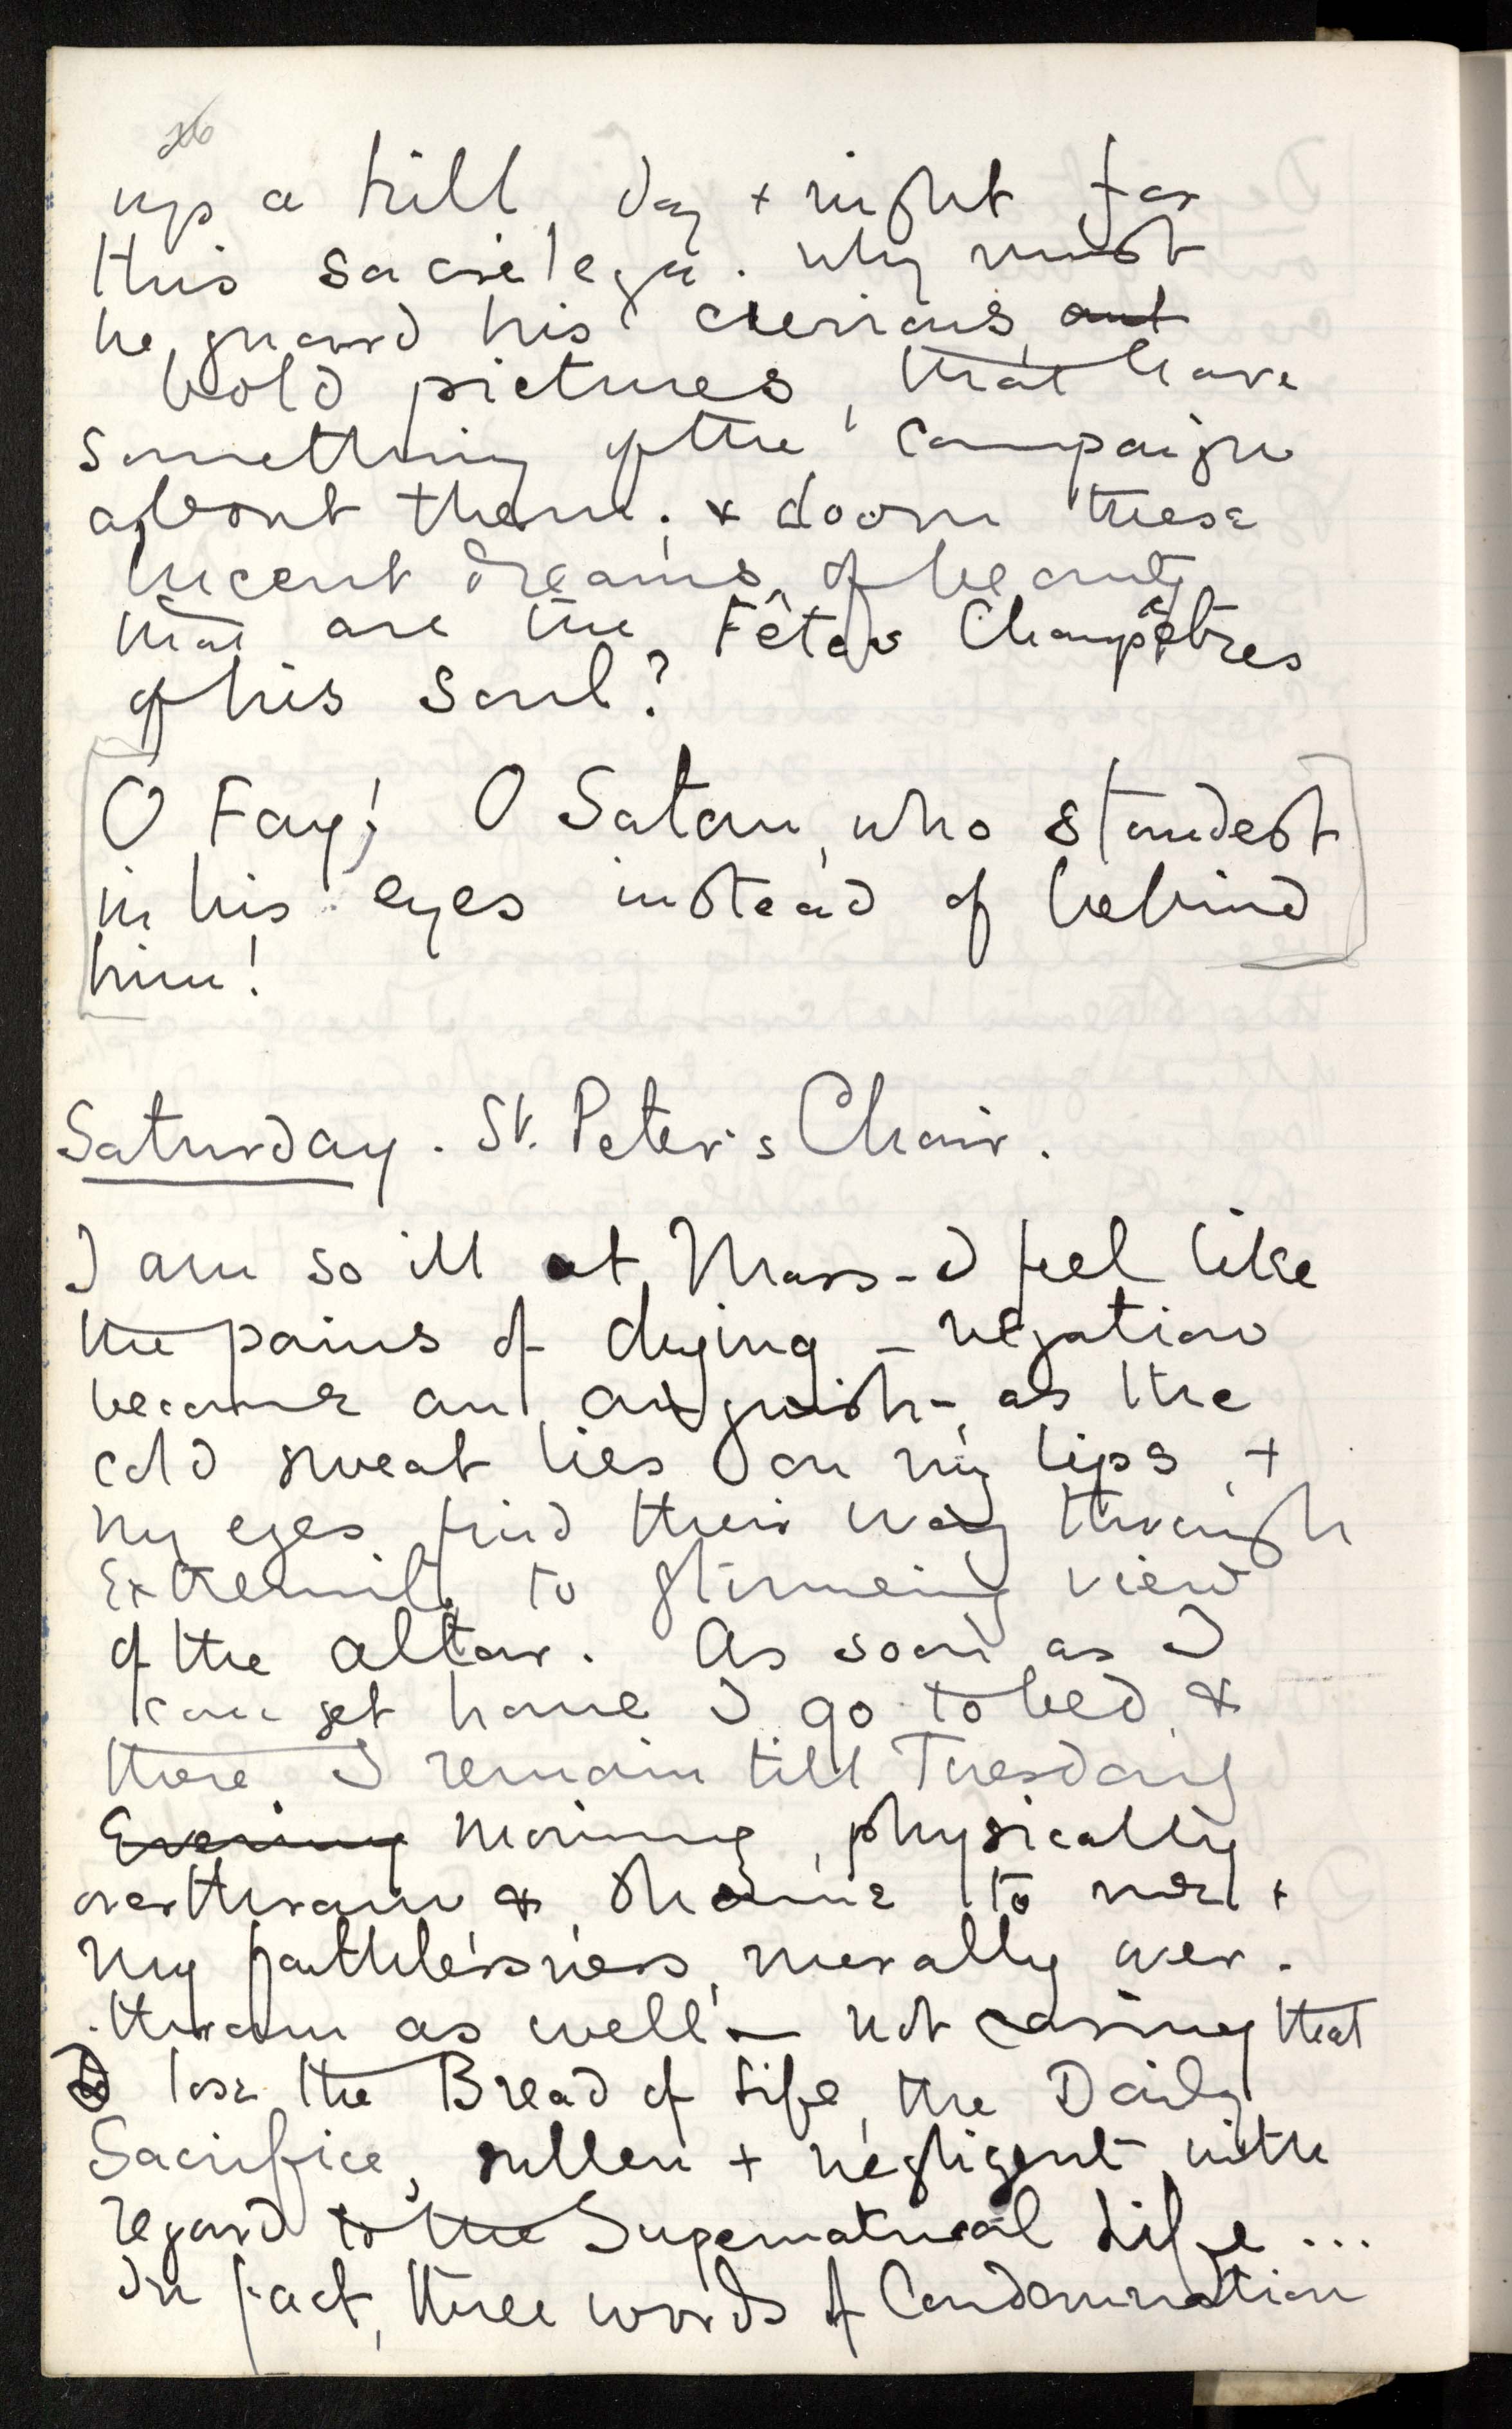 26
up a bill, day + night for
this sacrilege. Why must
he guard his curious, and
bold pictures, that have
something of the campaign
about them; & doom these
lucent dreams of beauty
that are the Fêtes Champêtres
of his soul?
O Fay! O Satan, who standest
in his eyes instead of behind
him!
Saturday. St. Peter's Chair.
I am so ill at Mass - I feel like
the pains of dying - negation
become an anguish - as the
cold sweat lies on my lips, +
my eyes find their way through
Extremity to glimmering view
of the altar. As soon as I
can get home I go to bed, &
there I remain till Tuesday
Evening morning, physically
overthrown & shame to me +
my faithlessness, morally over-
-thrown as well - not caring that
I lose the Bread of Life, the Daily
Sacrifice, sullen + negligent with
regard to the Supernatural Life ...
In fact, three words of Condemnation